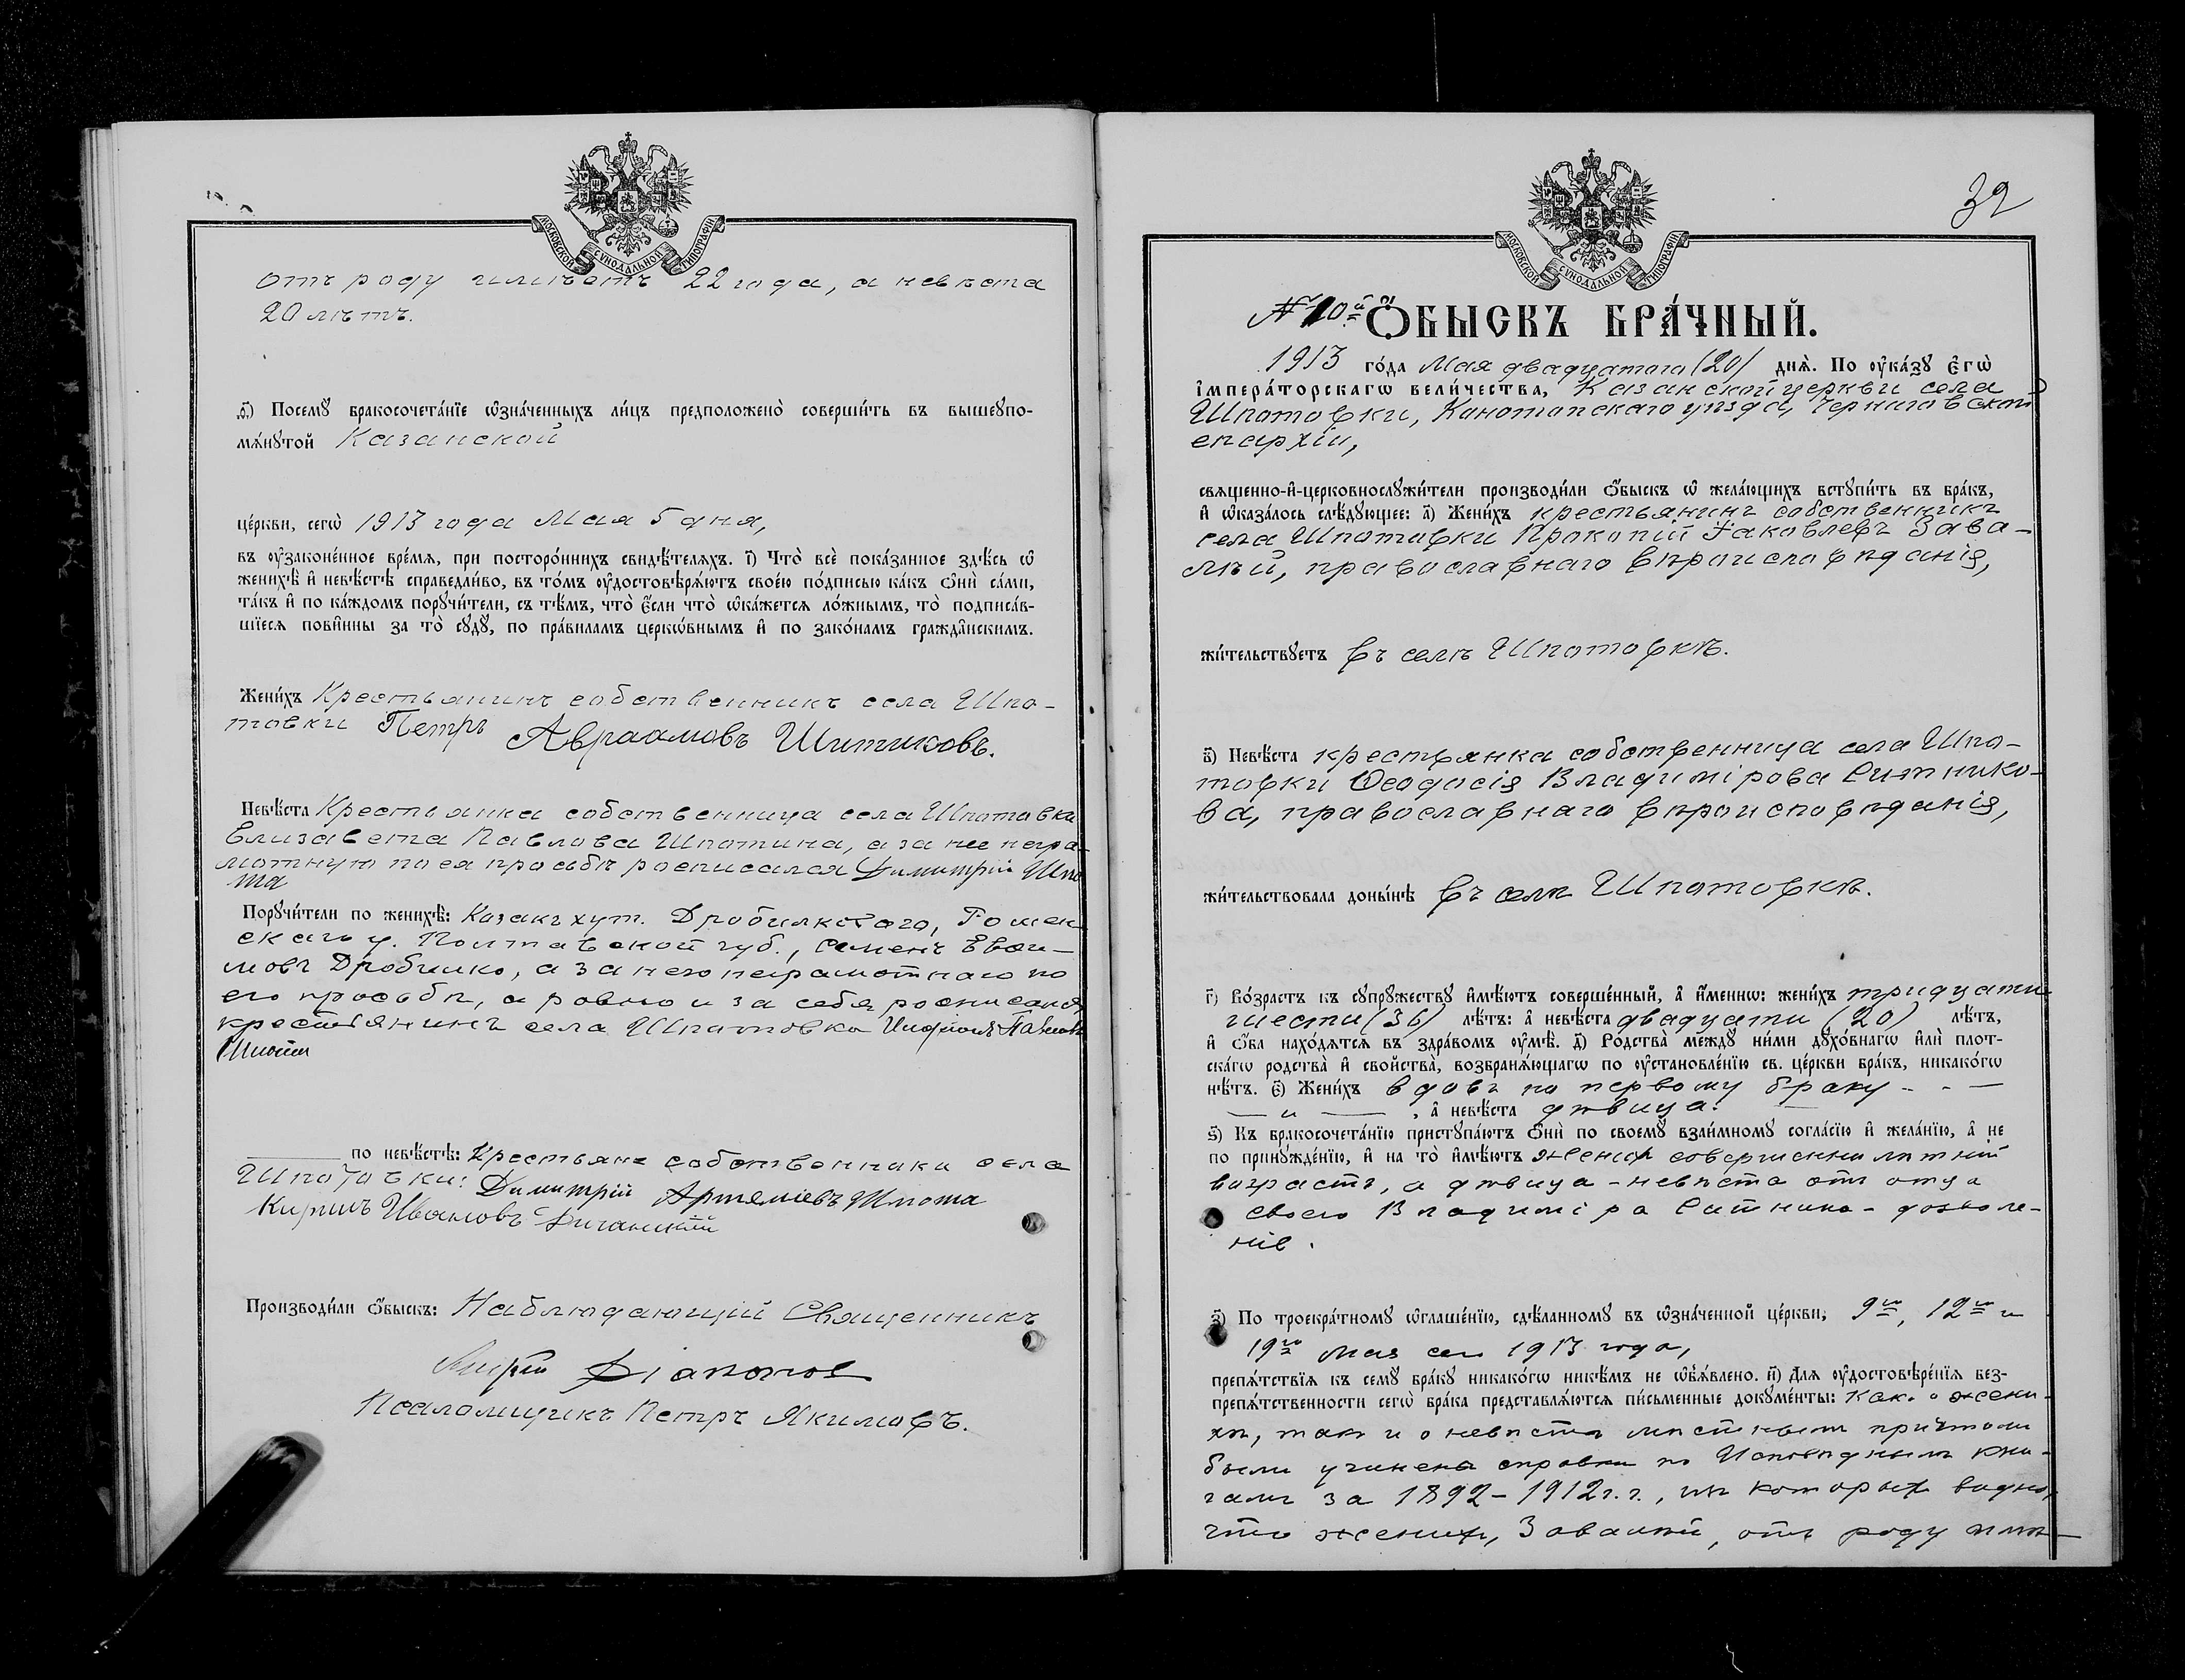 МОСКОВСКОЙ СѴНОДАЛЬНОЙ ТИПОГРАФІИ
отъ роду имѣетъ 22 года, а невѣста
20 лѣтъ.
ѳ҃) Посемꙋ̀ бракосочета́нїе ѡзна́ченныхъ ли́цъ предположено̀ соверши́ть въ вышеꙋпо-
мѧ́нꙋтой Казанской
це́ркви, сегѡ̀ 1913 года Мая 5 дня,
въ ᲂу҆законе́нное вре́мѧ, при посторо́ннихъ свидѣ́телѧхъ. і҃) Что̀ всѐ пока́занное здѣ́сь ѡ҆
женихѣ̀ и҆ невѣ́стѣ справедли́во, въ то́мъ ᲂу҆достовѣрѧ́ютъ свое́ю по́дписью ка́къ ѻ҆нѝ са́ми,
та́къ и҆ по ка́ждомъ порꙋчи́тели, съ тѣ́мъ, что̀ є҆́сли что̀ ѡ҆ка́жетсѧ ло́жнымъ, то̀ подписа́в-
шїесѧ пови́нны за то̀ сꙋдꙋ̀, по пра́виламъ церкѡ́внымъ и҆ по зако́намъ гражда́нскимъ.
Жени́хъ Крестьянинъ собственникъ села Шпо-
товки Петръ Авраамовъ Шитиковъ.
Невѣ́ста Крестьянка собственница села Шпотовки
Елизавета Павлова Шпотина, а за нее негра-
мотную по ея просьбѣ росписался Димитрій Шпо
та
Порꙋчи́тели по женихѣ̀: Казакъ хут. Дробилкового, Ромен
скаго у. Полтавской губ., Семенъ
мовъ Дробилко, а за него неграмотнаго по
его просьбѣ, а равно и за себя, росписался
крестьянинъ села Шпотовки Павловъ
Шпота
по невѣ́стѣ: Крестьяне собственники села
Шпотовки: Димитрій Артеміевъ Шпота
Кирилъ Ивановъ
Производи́ли ѻ҆́быскъ: Наблюдающій Священникъ
Андрей Діаконов
Псаломщикъ Петръ Якимовъ.
МОСКОВСКОЙ СѴНОДАЛЬНОЙ ТИПОГРАФІИ
32
№ 10й Ѻ҆́БЫСКЪ БРА́ЧНЫЙ.
1913 го́да Мая двадцатаго (20) днѧ̀. По ᲂу҆ка́зꙋ Є҆гѡ̀
І҆мпера́торскагѡ вели́чества, Казанской церкви села
Шпотовки, Конотопскаго уѣзда, Черниговской
епархіи,
свѧщенно-и҆-церковнослꙋжи́тели производи́ли ѻ҆́быскъ ѡ҆ жела́ющихъ встꙋпи́ть въ бра́къ,
и҆ ѡ҆каза́лось слѣ́дꙋющее: а҃) Жени́хъ крестьянинъ собственникъ
села Шпотовки Прокопій Іаковлевъ Зава-
лий, православнаго вѣроисповѣданія,
жи́тельствꙋетъ въ селѣ Шпотовкѣ.
в҃) Невѣ́ста крестьянка собственница села Шпо-
товки Ѳеодосія Владимірова Ситнико-
ва, православнаго вѣроисповѣданія,
жи́тельствовала доны́нѣ въ селѣ Шпотовкѣ.
г҃) Во́зрастъ къ сꙋпрꙋ́жествꙋ и҆мѣ́ютъ соверше́нный, а҆ и҆́меннѡ: жени́хъ тридцати
шести (36) лѣ́тъ: а҆ невѣ́ста двадцати (20) лѣ́тъ,
и҆ ѻ҆́ба нахо́дѧтсѧ въ здра́вомъ ᲂу҆мѣ̀. д҃) Ро́дства̀ ме́ждꙋ ни́ми дꙋхо́внагѡ и҆лѝ плот-
ска́гѡ родства̀ и҆ сво́йства̀, возбранѧ́ющагѡ по ᲂу҆становле́нїю св. це́ркви бра́къ, никако́гѡ
нѣ́тъ. є҃) Жени́хъ вдовъ по первому браку
, а҆ невѣ́ста дѣвица.
ѕ҃) Къ бракосочета́нїю пристꙋпа́ютъ ѻ҆нѝ по своемꙋ̀ взаи́мномꙋ согла́сїю и҆ жела́нїю, а҆ не
по принꙋжде́нїю, и҆ на то̀ и҆мѣ́ютъ женихъ совершеннолѣтній
возрастъ, а дѣвица-невѣста отъ отца
своего Владиміра Ситника - дозволе-
ніе.
з҃) По троекра́тномꙋ ѡ҆глаше́нїю, сдѣ́ланномꙋ въ ѡ҆зна́ченной це́ркви, 9го, 12го и
19го Мая сего 1913 года,
препѧ́тствїѧ къ семꙋ̀ бра́кꙋ никако́гѡ никѣ́мъ не ѡ҆б̾ѧ́влено. и҃) Длѧ ᲂу҆достовѣре́нїѧ без-
препѧ́тственности сегѡ̀ бра́ка представлѧ́ютсѧ пи́сьменные докꙋме́нты: Как. о жени-
хѣ, такъ и о невѣстѣ мѣстнымъ причтомъ
были учинена справки по Исповѣднымъ кни-
гамъ за 1892-1912 г.г., изъ которыхъ видно,
что женихъ, Завалий, отъ роду имѣ-